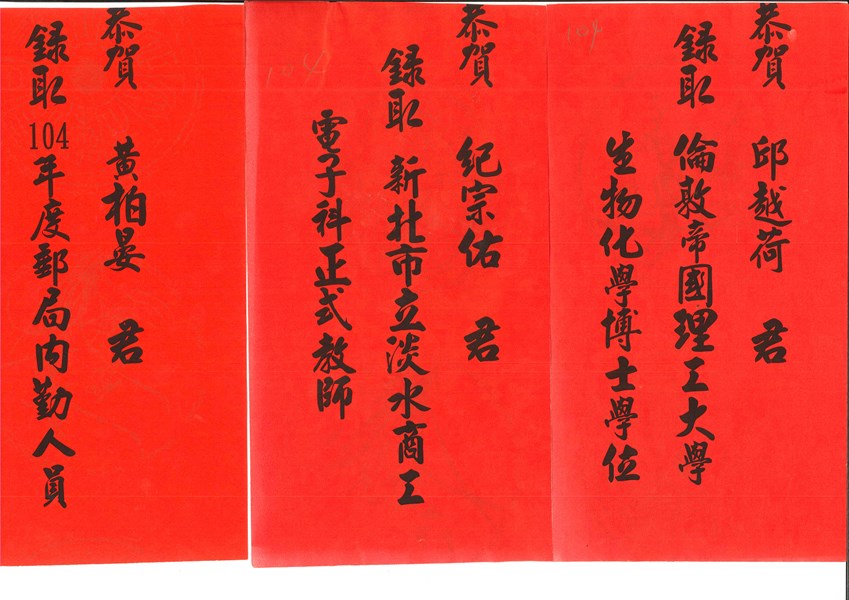 恭賀
邱越荷 君
錄取 倫敦帝國理工大學
生物化學博士學位
104
恭賀
紀宗佑 君
錄取 新北市立淡水商工
電子科正式教師
104
恭賀
黃柏晏 君
錄取 104年度郵局內勤人員